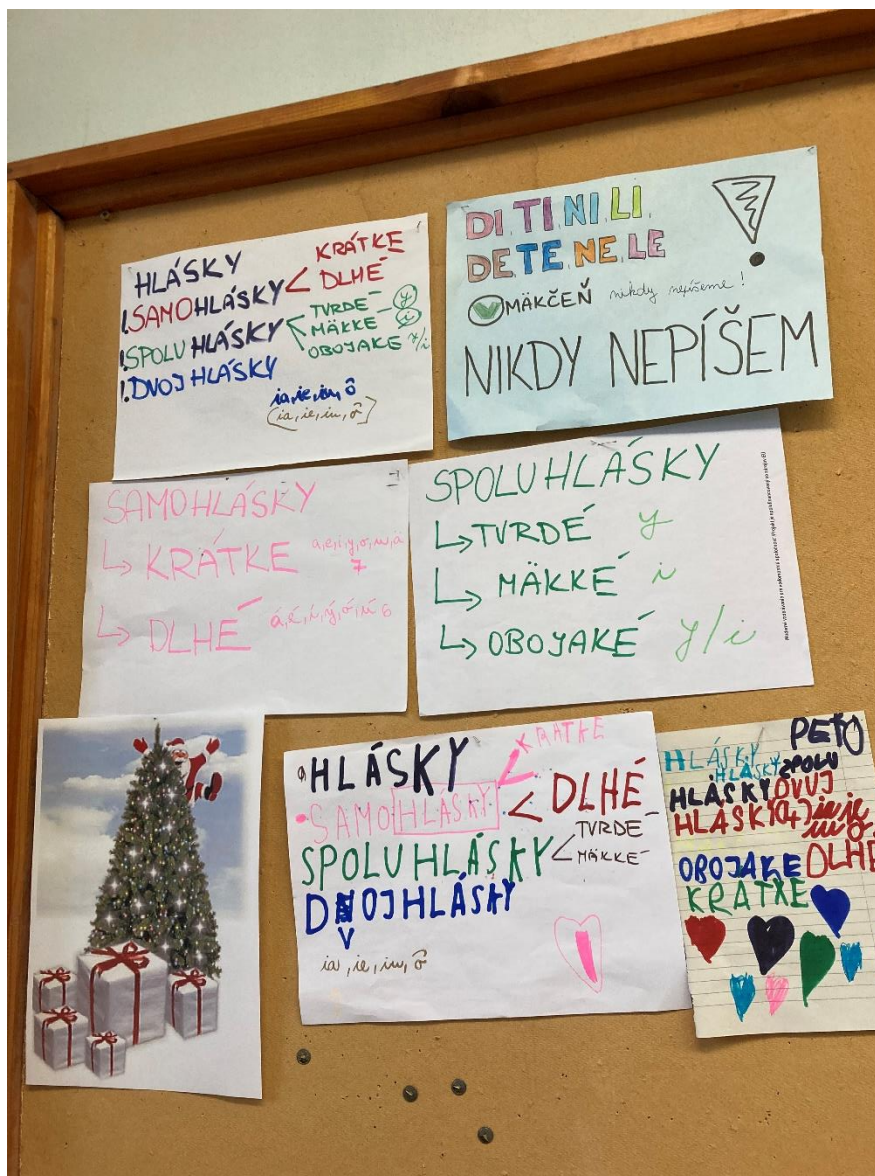 HLÁSKY
1. SAMOHLÁSKY
KRÁTKE
DLHÉ
1. SPOLUHLÁSKY
TVRDÉ - y
MÄKKE - i
OBOJAKE y/i
1. DVOJHLÁSKY
ia, ie, iu, ô
(ia, ie, iu, ô)
DI, TI, NI, LI,
DE, TE, NE, LE
MÄKČEŇ nikdy nepíšeme!
NIKDY NEPÍŠEM
SAMOHLÁSKY
KRÁTKE a, e, i, y, o, u, ä
7
DLHÉ á, é, í, ý, ó, ú 6
SPOLUHLÁSKY
TVRDÉ y
MÄKKÉ i
OBOJAKÉ y/i
HLÁSKY
KRATKE
SAMOHLÁSKY
DLHÉ
SPOLUHLÁSKY
TVRDÉ
MÄKKÉ
DVOJHLÁSKY
V
ia, ie, iu, ô
PEŤO
HLÁSKY
HLÁSKY SPOLU
HLÁSKY DVUJ
HLASKY (4) iu ie
OBOJAKE DLHE
KRATKE